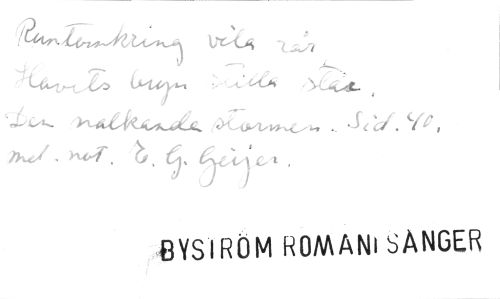 Runtomkring vila rår,
Havets bryn stilla står.
Den nalkande stormen. Sid. 40.
mel. not. E. G. Geijer.
BYSTRÖM ROMANI SÅNGER